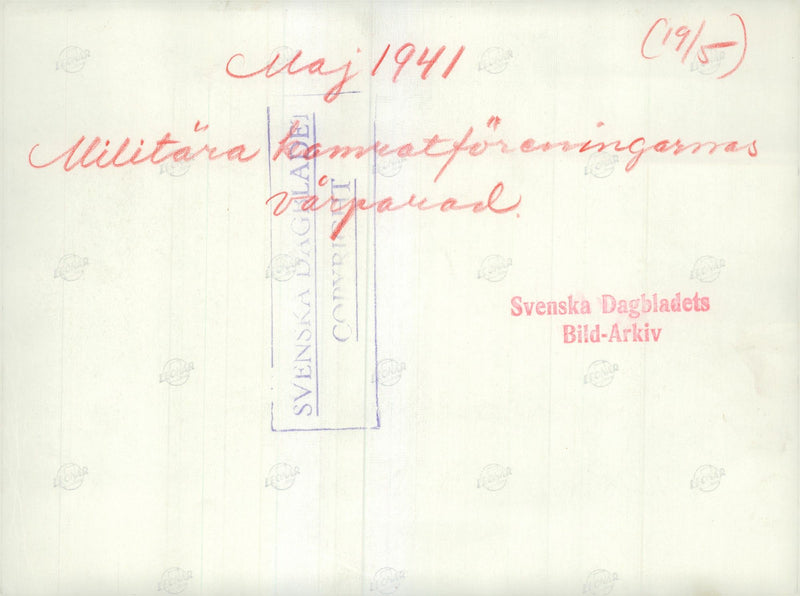 Maj 1941
(19/5)
Militära kamratföreningarnas
vårparad.
SVENSKA DAGBLADET
COPYRIGHT
Svenska Dagbladets
Bild-Arkiv
LEONAR